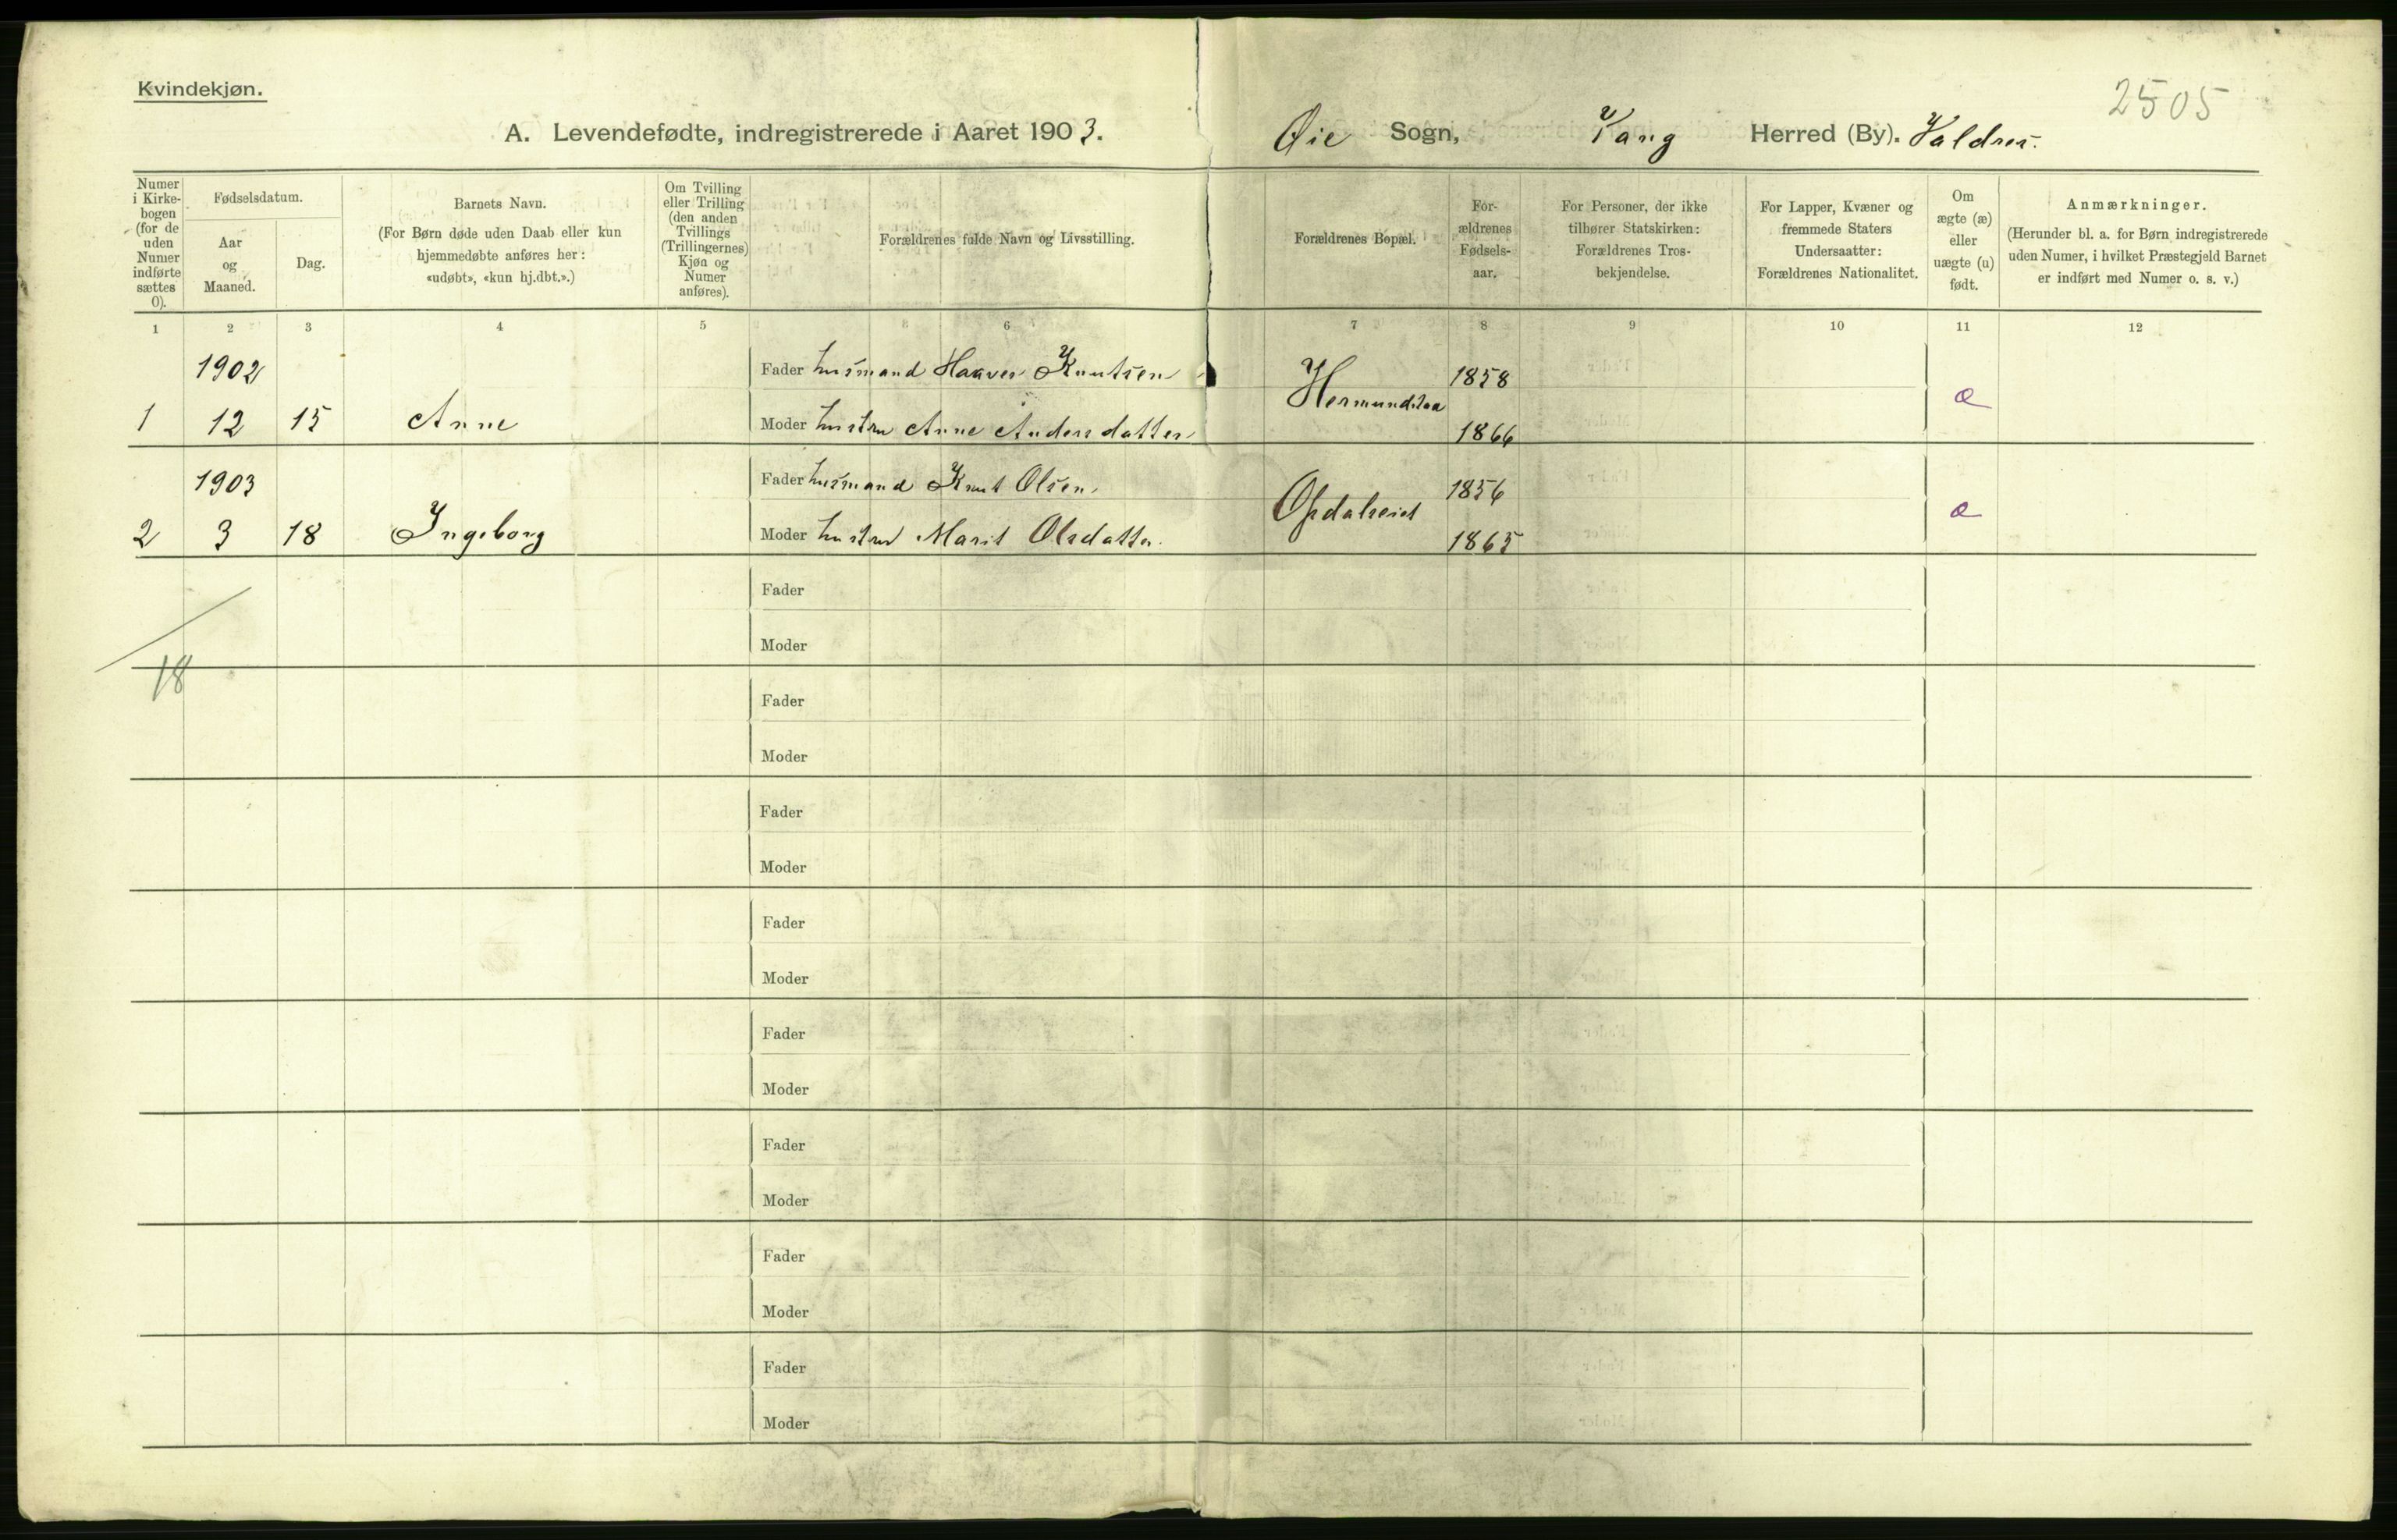 Kvindekjøn.
2505
A. Levendefødte, indregistrerede i Aaret 1903. Øie Sogn, Vang Herred (By). Valdres.
Numer i Kirkebogen (for de uden Numer indførte sættes 0).
Fødselsdatum.
Aar og Maaned.
Dag.
Barnets Navn.
(For Børn døde uden Daab eller kun hjemmedøbte anføres her: «udøbt», «kun hj.dbt.».)
Om Tvilling eller Trilling (den anden Tvillings (Trillingernes) Kjøn og Numer anføres).
Forældrenes fulde Navn og Livsstilling.
Forældrenes Bopæl.
Forældrenes Fødselsaar.
For Personer, der ikke tilhører Statskirken: Forældrenes Trosbekjendelse.
For Lapper, Kvæner og fremmede Staters Undersaatter: Forældrenes Nationalitet.
Om ægte (æ) eller uægte (u) født.
Anmærkninger.
(Herunder bl. a. for Børn indregistrerede uden Numer, i hvilket Præstegjeld Barnet er indført med Numer o. s. v.)
1 2 3 4 5 6 7 8 9 10 11 12
1902 Fader husmand Haaver Knutsen Hermundstaa 1858 æ
1 12 15 Anne Moder hustru Anne Andersdatter 1866
1903 Fader husmand Knut Olsen Opdalseid 1856 æ
2 3 18 Ingeborg Moder hustru Marit Olsdatter 1865
Fader
Moder
18
Fader
Moder
Fader
Moder
Fader
Moder
Fader
Moder
Fader
Moder
Fader
Moder
Fader
Moder